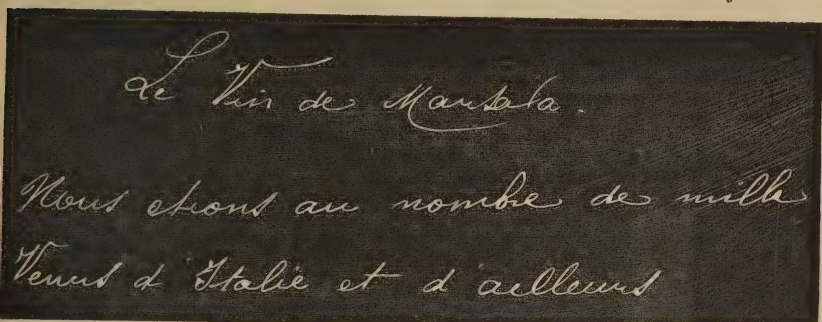 Le Vin de Marsala.
Nous etions au nombre de mille
Venus d'Italie et d'ailleurs